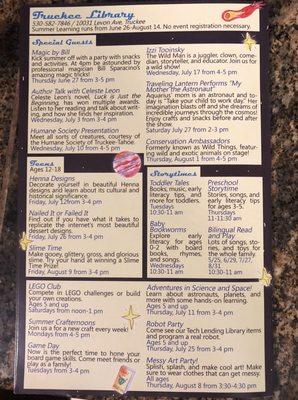 Truckee Library
530-582-7846 / 10031 Levon Ave, Truckee
Summer Learning runs from June 26-August 14. No event registration necessary.
Special Guests
Magic by Bill
Kick summer off with a party with snacks
and activities. At 4pm be astounded by
professional magician Bill Sparacino's
amazing magic tricks!
Thursday June 27 from 3-5 pm
Author Talk with Celeste Leon
Celeste Leon's novel, Luck is Just the
Beginning, has won multiple awards.
Listen to her reading and talk about writ-
ing, and how she finds her inspiration.
Wednesday, July 3 from 3-4 pm
Humane Society Presentation
Meet all sorts of creatures, courtesy of
the Humane Society of Truckee-Tahoe.
Wednesday, July 10 from 4-5 pm
Izzi Tooinsky
The Wild Man is a juggler, clown, come-
dian, storyteller, and educator. Join us for
a wild show!
Wednesday, July 17 from 4-5 pm
Traveling Lantern Performs "My
Mother the Astronaut"
Aquarius' mom is an astronaut and to-
day is "take your child to work day." Her
imagination blasts off and she dreams of
incredible journeys through the cosmos!
Enjoy crafts and snacks before and after
the show.
Saturday July 27 from 2-3 pm
Conservation Ambassadors
Formerly known as Wild Things, featur-
ing wild and exotic animals on stage!
Thursday, August 1 from 4-5 pm
Teens
Ages 12-18
Henna Designs
Decorate yourself in beautiful Henna
designs and learn about its cultural and
historical significance.
Friday, July 12 from 3-4 pm
Nailed It or Failed It
Find out if you have what it takes to
replicate the internet's most beautiful
desserts.
Friday, July 26 from 3-4 pm
Slime Time
Make gooey, glittery, gross, and glorious
slime. Try your hand at winning a Slime
Time Prize!
Friday, August 9 from 3-4 pm
Storytimes
Toddler Tales
Books, music, early
literacy tips, and
more for toddlers.
Tuesdays
10:30-11 am
Baby
Bookworms
Explore early
literacy for ages
0-2 with board
books, rhymes,
and songs.
Wednesdays
10:30-11 am
Preschool
Storytime
Stories, songs, and
early literacy tips
for ages 3-5.
Thursdays
11-11:30 am
Bilingual Read
and Play
Lots of songs, sto-
ries, and toys for
the whole family.
5/25, 6/29, 7/27,
8/31
10:30-11 am
LEGO Club
Compete in LEGO challenges or build
your own creations.
Ages 5 and up
Saturdays from noon-1 pm
Summer Crafternoons
Join us for a new craft every week!
Mondays from 4-5 pm
Game Day
Now is the perfect time to hone your
board game skills. Come meet friends or
play as a family!
Tuesdays from 3-4 pm
Adventures in Science and Space!
Learn about astronauts, planets, and
more with some hands-on learning.
Ages 5 and up
Thursday, July 11 from 3-4 pm
Robot Party
Come see our Tech Lending Library items
and program a real robot.
Ages 5 and up
Thursday, July 25 from 3-4 pm
Messy Art Party!
Splish, splash, and make cool art! Make
sure to wear clothes that can get messy.
All ages
Thursday, August 8 from 3:30-4:30 pm